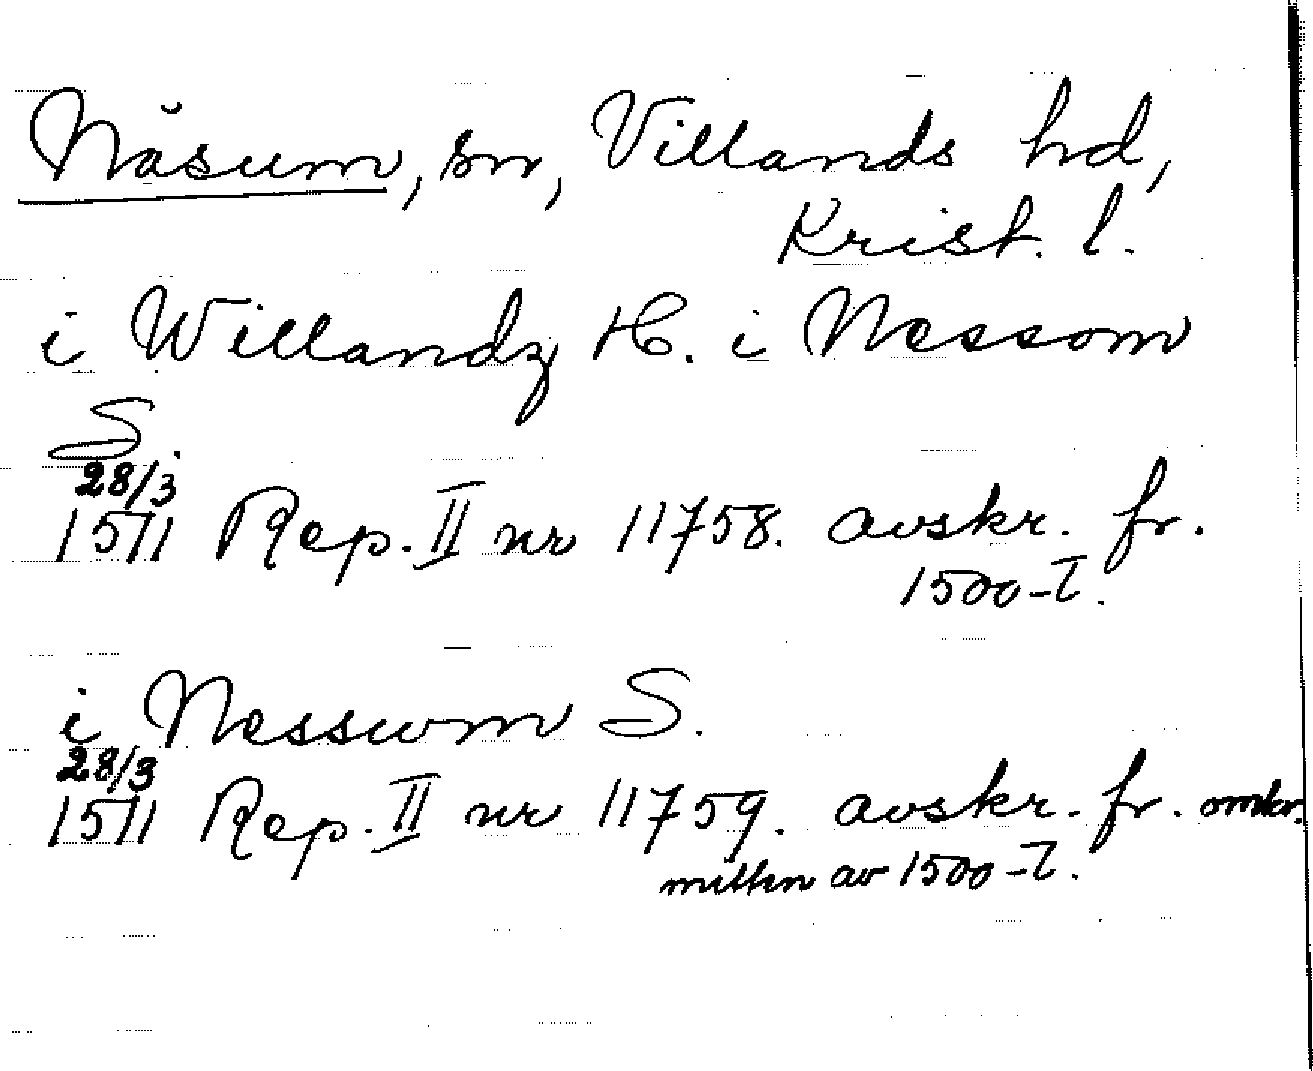 Näsum, sn, Villands hd,
Krist. l.
i Willandz H. i Nessom
S.
28/3
1511 Rep. II nr 11758. avskr. fr.
1500-T.
i Nesswm S.
28/3
1511 Rep. II nr 11759. avskr. fr. omkr.
mitten av 1500-T.